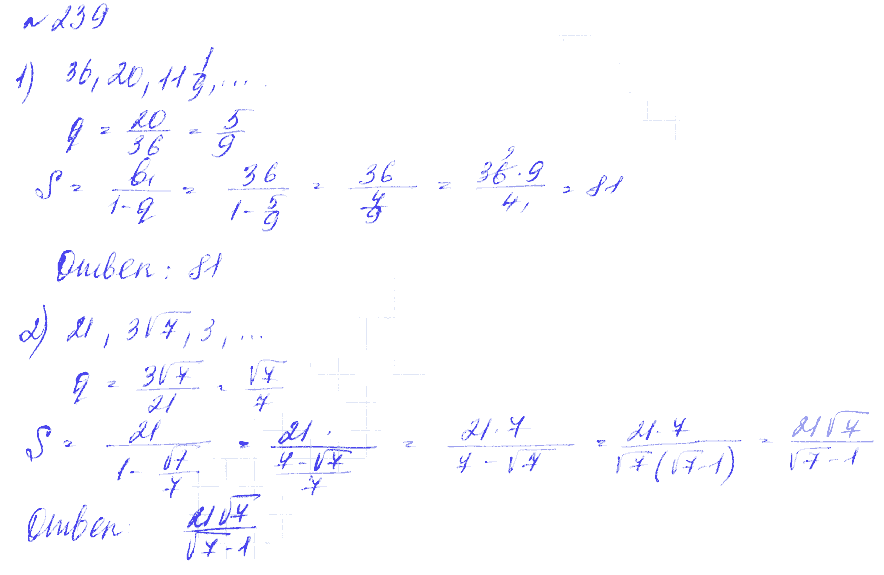 №239
1) 36, 20, 11 1/9, ...
q = 20/36 = 5/9
S = b₁/(1-q) = 36/(1-5/9) = 36/(4/9) = (36·9)/4 = 81
Ответ: 81
2) 21, 3√7, 3, ...
q = 3√7/21 = √7/7
S = 21/(1-√7/7) = 21/((7-√7)/7) = (21·7)/(7-√7) = (21·7)/(√7(√7-1)) = 21√7/(√7-1)
Ответ: 21√7/(√7-1)